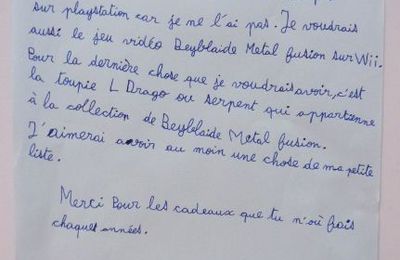 sur playstation car je ne l'ai pas. Je voudrais
aussi le jeu vidéo Beyblaide Metal fusion sur Wii.
Pour la dernière chose que je voudrais avoir, c'est
la toupie L Drago ou serpent qui appartienne
à la collection de Beyblaide Metal fusion.
J'aimerai avoir au moin une chose de ma petite
liste.
Merci Pour les cadeaux que tu n'où frais
chaques années.